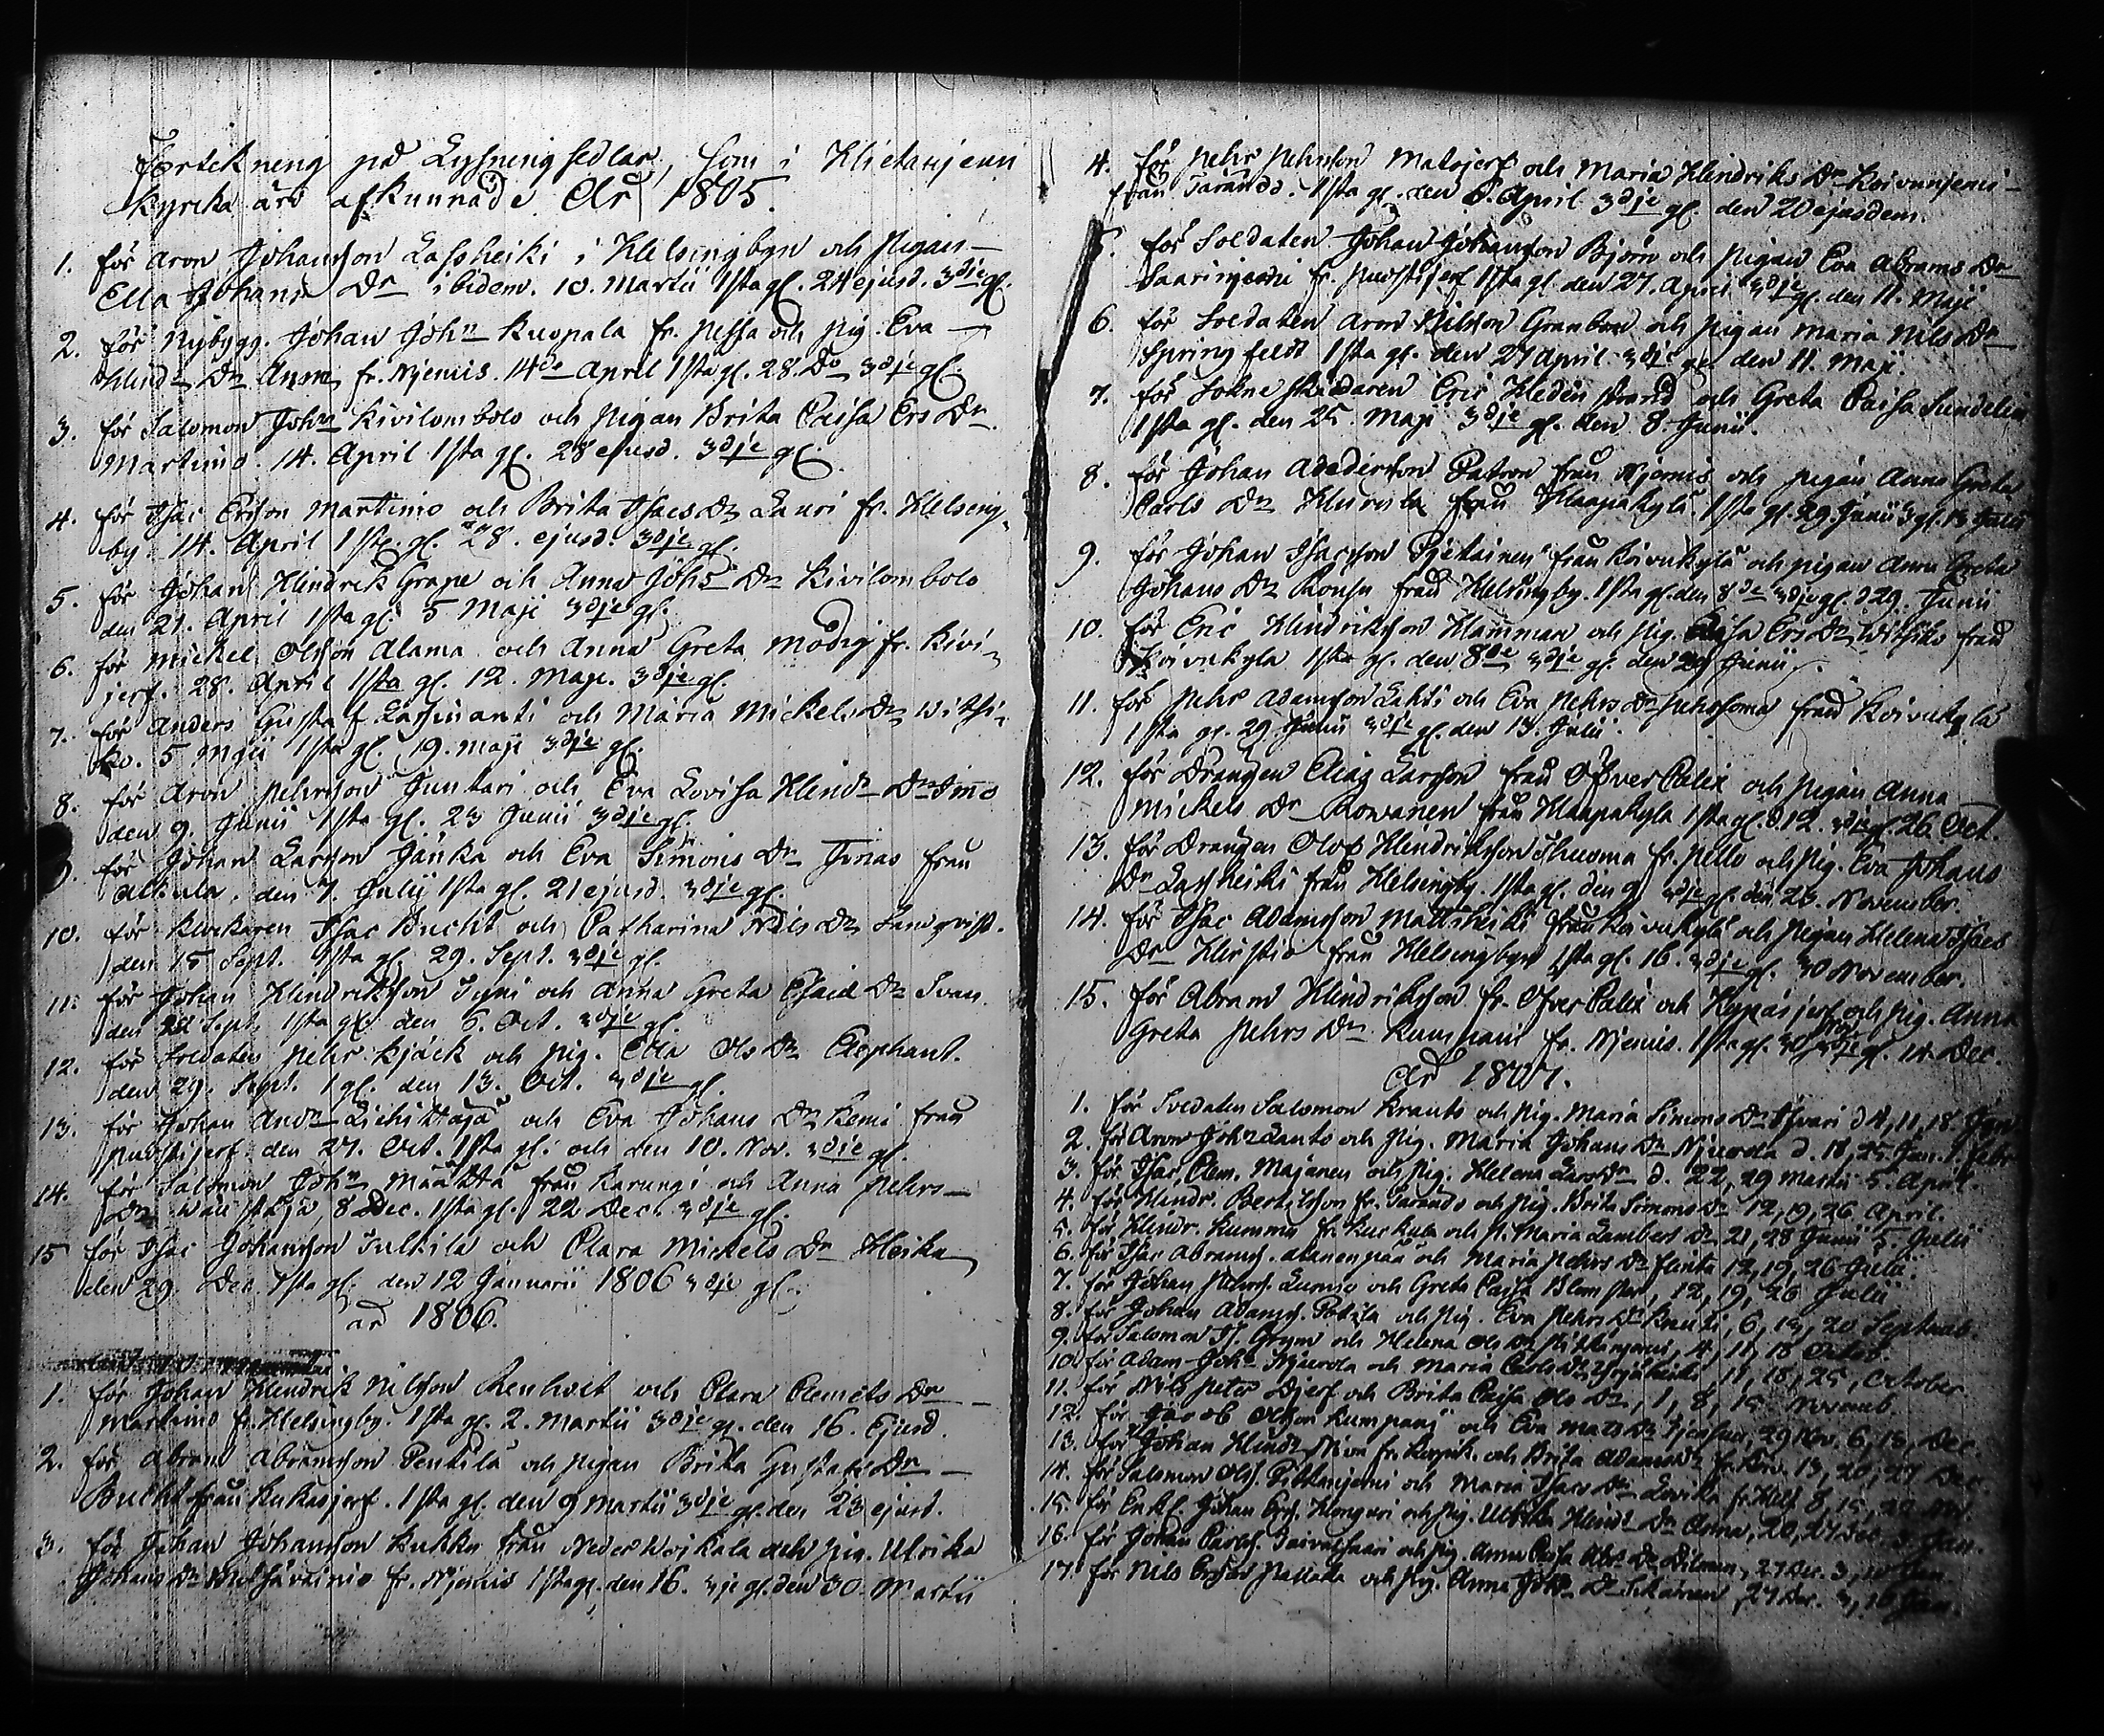 Förtekning på Lysningssedlar, som i Hietanjemi
Kyrcka äro afkunnade År 1805.
1. för Aron Johansson Lassheiki i Helsingbyn och Pigan
Ella Johans Dr ibidem. 10. Martii 1sta gl. 24 ejusd. 3dje gl.
2. för Nybygg. Johan John Kuopala fr. och Pig. Eva
Hind. Dr Anna fr. Njemis. 14de April 1sta gl. 28 Do 3dje gl.
3. för Salomon Johns Kivilombolo och Pigan Brita Caisa Ers Dr
Martimo. 14. April 1sta gl. 28 ejusd. 3dje gl.
4. för Isac Ersson Martimo och Brita Isacs Dr Lauri fr. Helsing-
by. 14. April 1sta gl. 28. ejusd. 3dje gl.
5. för Johan Hindrik Grape och Anna Johs Dr Kivilombolo
den 21. April 1sta gl. 5 Maji 3dje gl.
6. för Mickel Olsson Alama och Anna Greta Modig fr. Kivi-
jerf. 28. April 1sta gl. 12. Maji. 3dje gl.
7. för Anders Gustaf och Maria Mickels Dr Witsi-
ko. 5 Maji 1sta gl. 19. Maji 3dje gl.
8. för Aron Pehrsson Juntari och Eva Lovisa Hindr DrImo
den 9. Junii 1sta gl. 23 Junii 3dje gl.
9. för Johan Larsson Jänka och Eva Simons Dr från
Alkula. den 7. Julii 1sta gl. 21 ejusd. 3dje gl.
10. för Klockaren Isac Bucht och Catharina Nils Dr Landqvist.
den 15 Sept. 1sta gl. 29. Sept. 3dje gl.
11. för Johan Hindriksson och Anna Greta Esaiæ Dr Svan.
den 22 Sept. 1sta gl. den 6. Oct. 3dje gl.
12. för Soldaten Pehr Kjäck och Pig. Ella Ols Dr Elephant.
den 29. Sept. 1 gl. den 13. Oct. 3dje gl.
13. för Johan Andr och Eva Johans Dr Kemi från
den 27. Oct. 1sta gl. och den 10. Nov. 3dje gl.
14. för Salomon Johns Määttä från Karungi och Anna Pehrs
Dr 8 Dec. 1sta gl. 22 Dec. 3dje gl.
15 för Isac Johansson och Clara Mickels Dr Heika
den 29. Dec. 1sta gl. den 12 Januarii 1806 3dje gl.
år 1806.
1. för Johan Hindrik Nilsson Renhvit och Clara Clemets Dr
Martimo fr. Helsingby. 1sta gl. 2. Martii 3dje gl. den 16. Ejusd.
2. för Abram Abramsson Pentilä och Pigan Brita Gustafs Dr
Bucht från Kukasjerf. 1sta gl. den 9 Martii 3dje gl. den 23 ejusd.
3. för Johan Johansson Kukko från Neder Wojkala och Pig. Ulrika
Johans Dr fr. Njemis 1sta gl. den 16. 3je gl. den 30. Martii
4. för Pehr Pehrsson Matojerf och Maria Hindriks Dr Koivunjemi
från Tärändö. 1sta gl. den 6. April 3dje gl. den 20 ejusdem.
5. för Soldaten Johan Johansson Björn och Pigan Eva Abrams Dr
Saarinjemi fr. 1sta gl. den 27. April 3dje gl. den 11. Maji
6. för Soldaten Aron Nilsson Granbom och Pigan Maria Nils Dr
Springfeldt 1sta gl. den 27 April 3dje gl. den 11. Maji.
7. för Sokneskräddaren Eric Hedenstrand och Greta Caisa Sundelin
1sta gl. den 25. Maji 3dje gl. den 8. Junii.
8. för Johan från Njemis och Pigan Anna Greta
Carls Dr från Haapakylä 1sta gl. 29. Junii 3 gl. 13 Julii
9. för Johan Isacsson Pjettainen från Koivukylä och Pigan Anna Greta
Johans Dr från Helsingby. 1sta gl. den 8de 3dje gl. d 29. Junii
10. för Eric Hindriksson Hannman och Pig. Ers Dr Witsiko från
Koivukylä 1sta gl. den 8de 3dje gl. den 29 Junii
11. för Pehr Adamsson Lahti och Eva Pehrs Dr från Koivukylä
1sta gl. 29. Junii 3dje gl. den 13. Julii.
12. för Drängen Elias Larsson från Öfver Calix och Pigan Anna
Mickels Dr Rowanen från Haapakylä 1sta gl. d. 12. 3dje gl. 26. Oct.
13. för Drängen Olof Hindriksson fr. Pello och Pig. Eva Johans
Dr Lassheiki från Helsingby. 1sta gl. den 9 3dje gl. den 23. November.
14. för Isac Adamsson från Koivukylä och Pigan Helena Isacs
Dr från Helsingbyn 1sta gl. 16. 3dje gl. 30 November.
15. för Abram Hindriksson fr. Öfver Calix och och Pig. Anna
Greta Pehrs Dr Kumpani fr. Njemis. 1sta gl. 30 Nov. 3dje gl. 14. Dec.
År 1807.
1. för Soldaten Salomon Krants och Pig. Maria Simons Dr d 4, 11, 18. Jan.
2. för Aron Johs Lanto och Pig. Maria Johans Dr Njuorola d. 18, 25 Jan. 1. Febr.
3. för Isac Clem. Majanen och Pig. Helena Lars Dr d. 22, 29 Martii 5. April.
4. för Hindr. Bertilsson fr. Tärändö och Pig. Brita Simons Dr 12, 19, 26 April.
5. för Hindr. Kummu fr. och P. Maria Lamberts Dr 21, 28 Junii 5 Julii
6. för Isac Abramss. Alanenpää och Maria Pehrs Dr Flinta 12, 19, 26 Julii.
7. för Johan Pehrss. och Greta Caisa Blomster, 12, 19, 26 Julii
8. för Johan Adamss. och Pig. Eva Pehrs Dr 6, 13, 20 Septemb.
9. för Salomon Is. Grym och Helena Ols Dr 4, 11, 18 Octob.
10. för Adam Johs Njuorola och Maria Carls Dr 11, 18, 25, October
11. för Nils Peter Djerf och Brita Caisa Ols Dr, 1, 8, 15 Novemb.
12. för Jacob Olsson Kumpani och Eva Mats Dr 29 Nov. 6, 13, Dec.
13. för Johan Hindr Niva fr. och Brita Adams Dr 13, 20, 27 Dec.
14. för Salomon Olss. och Maria Isacs Dr 8, 15, 22 Nov.
15. för Enkl. Johan och Pig. Ulrika Hindr Dr Anna, 20, 27 Dec. 3 Jan.
16. för Johan Carlss. och Pig. Anna Caisa Dr 27 Dec. 3, 10 Jan.
17. för Nils Ersson och Pig. Anna Johs Dr 27 Dec. 3, 10 Jan.